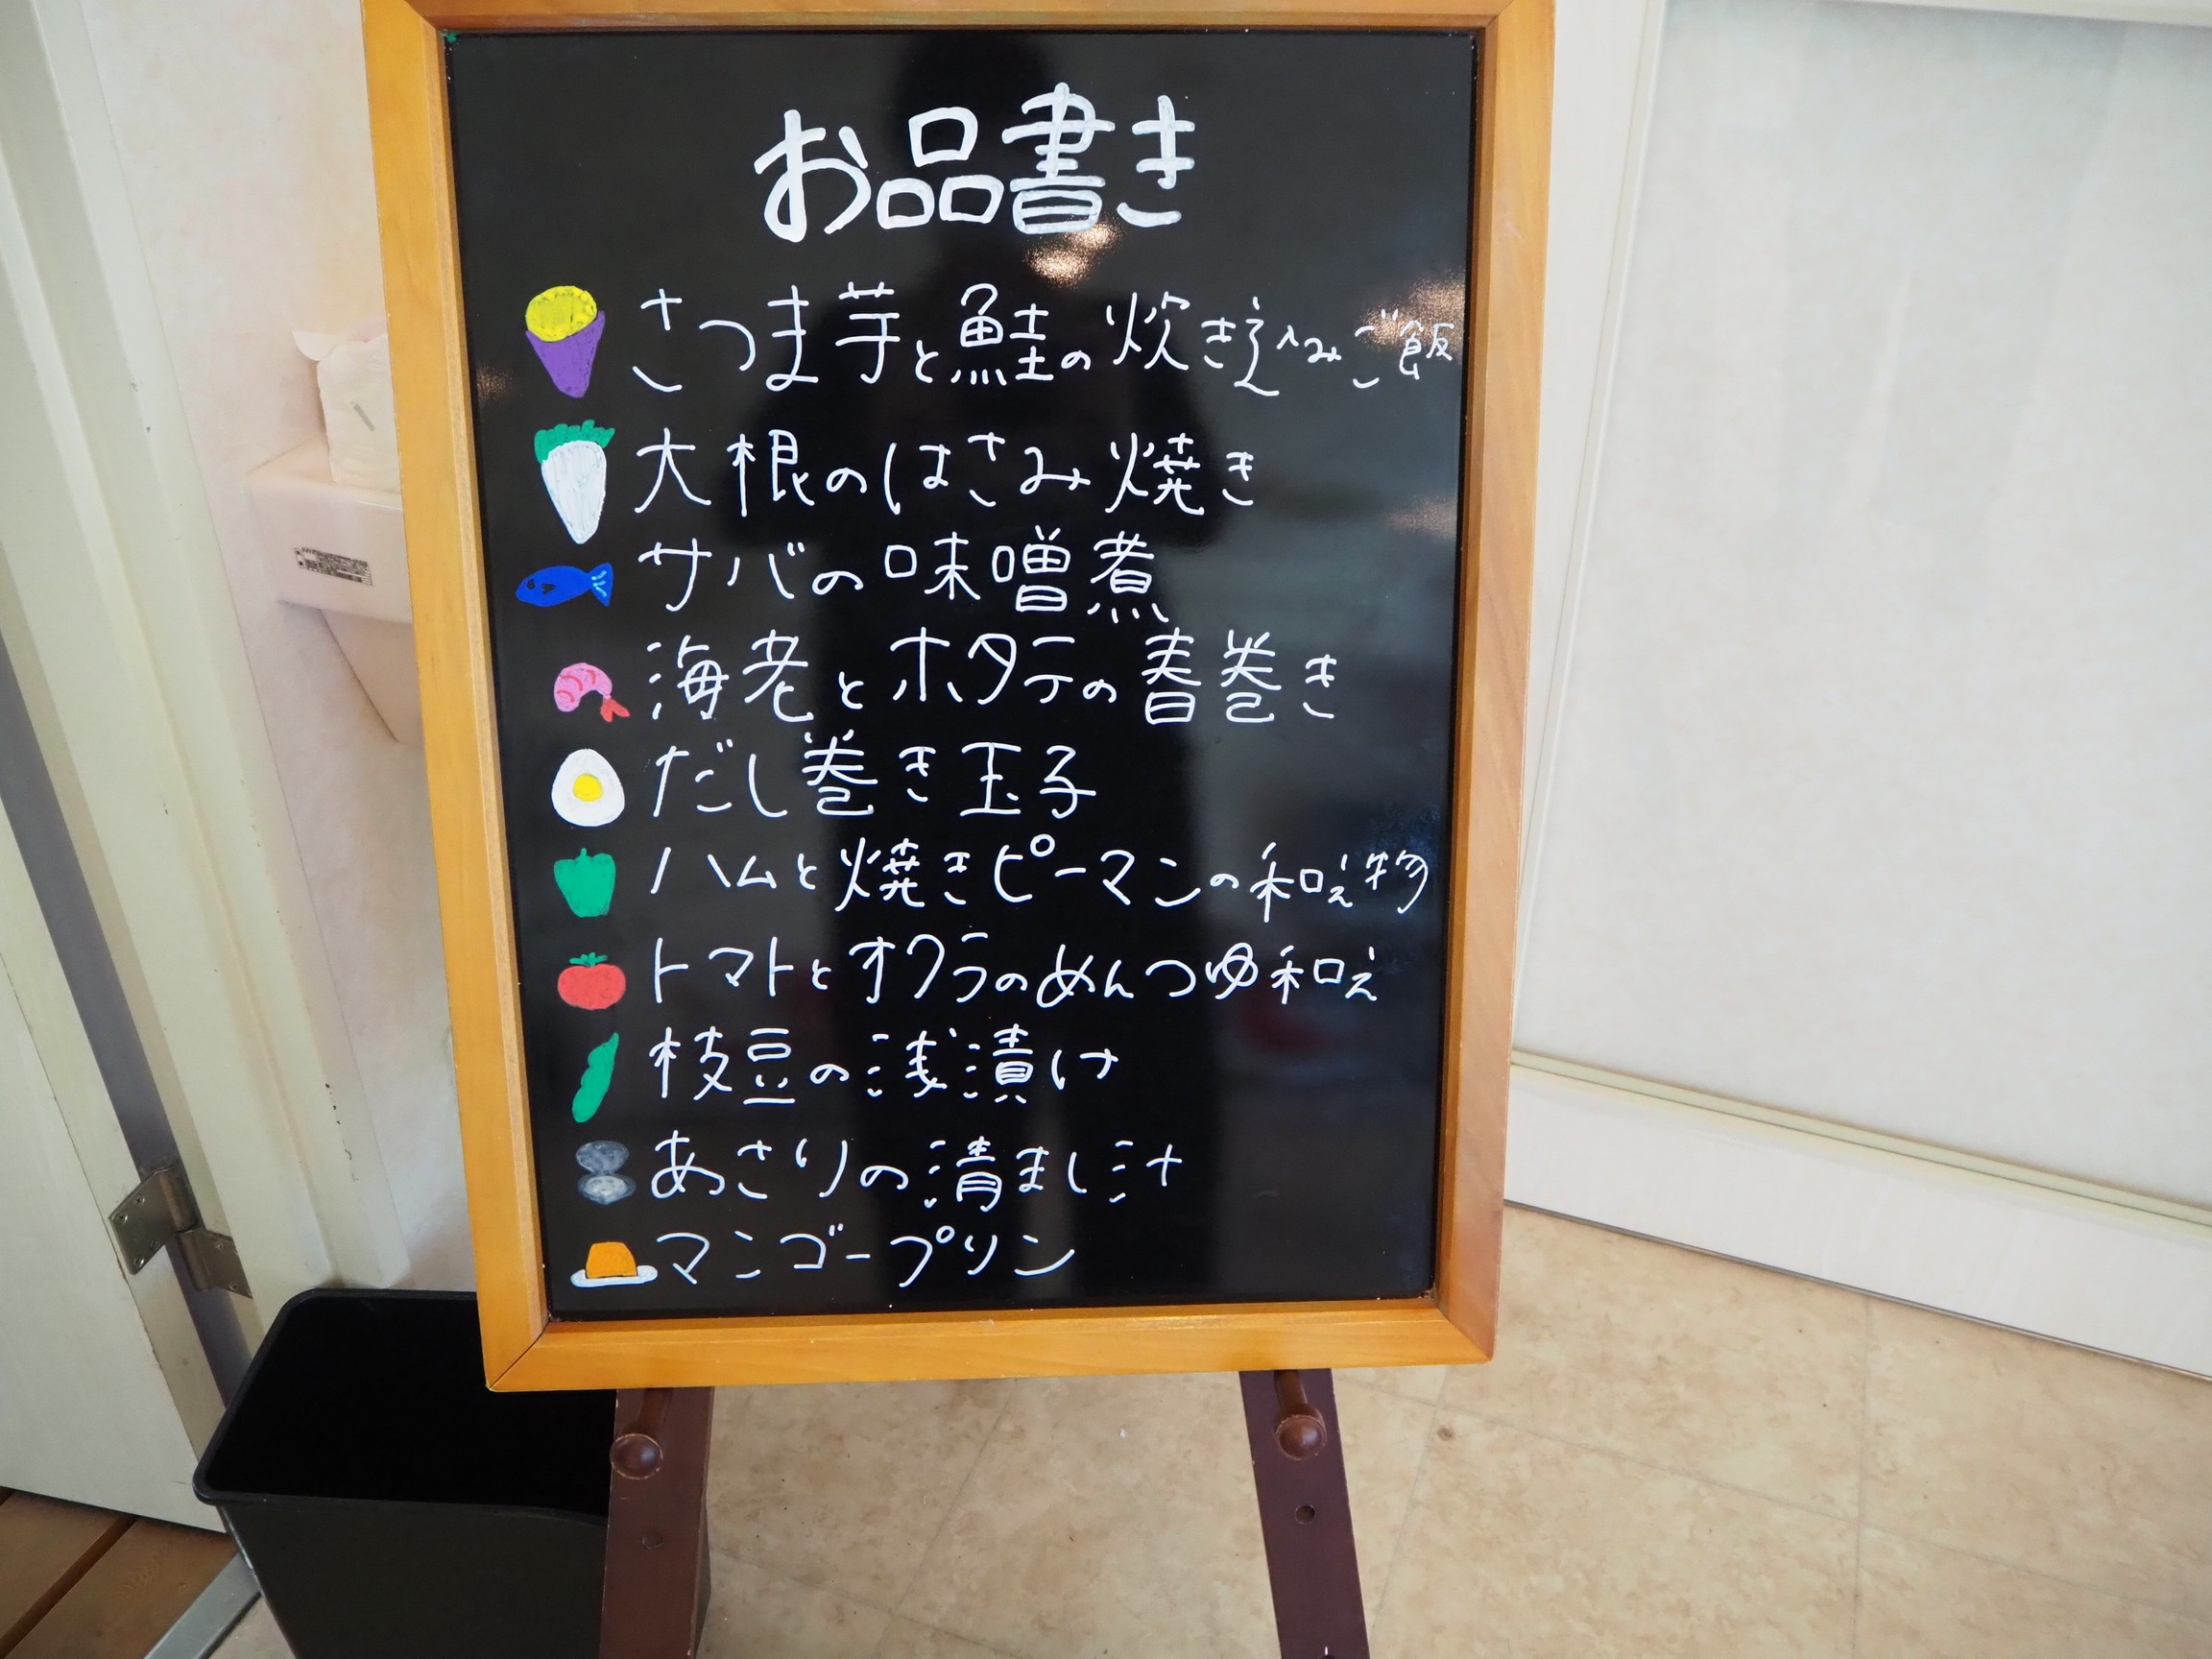 お品書き
さつま芋と鮭の炊き込みご飯
大根のはさみ焼き
サバの味噌煮
海老とホタテの春巻き
だし巻き玉子
ハムと焼きピーマンの和え物
トマトとオクラのめんつゆ和え
枝豆の浅漬け
あさりの清まし汁
マンゴープリン